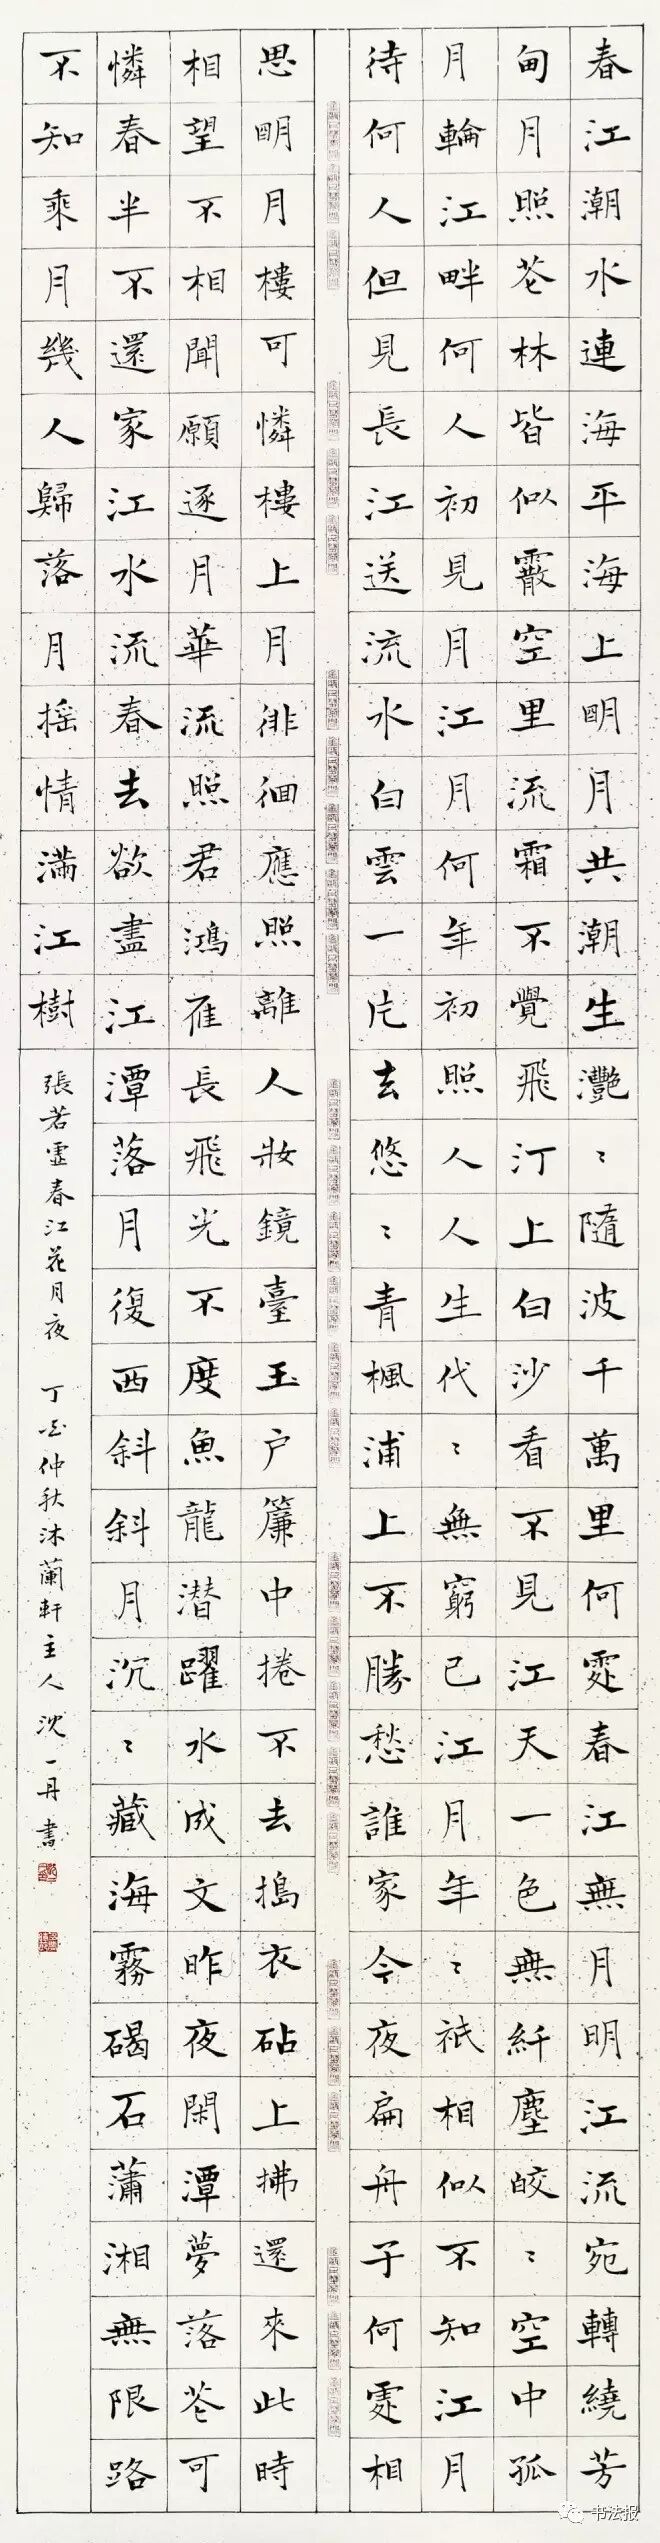 春江潮水連海平海上明月共潮生灧〻隨波千萬里何處春江無月明江流宛轉繞芳
甸月照花林皆似霰空里流霜不覺飛汀上白沙看不見江天一色無纤塵皎〻空中孤
月輪江畔何人初見月江月何年初照人人生代〻無窮已江月年〻祇相似不知江月
待何人但見長江送流水白雲一片去悠〻青楓浦上不勝愁誰家今夜扁舟子何處相
思明月樓可憐樓上月徘徊應照離人妝鏡臺玉户簾中捲不去搗衣砧上拂還來此時
相望不相聞願逐月華流照君鴻雁長飛光不度魚龍潜躍水成文昨夜閑潭夢落花可
憐春半不還家江水流春去欲盡江潭落月復西斜斜月沉〻藏海霧碣石瀟湘無限路
不知乘月幾人歸落月摇情滿江樹
張若虛春江花月夜 丁酉仲秋沐蘭軒主人沈一丹書
书法报